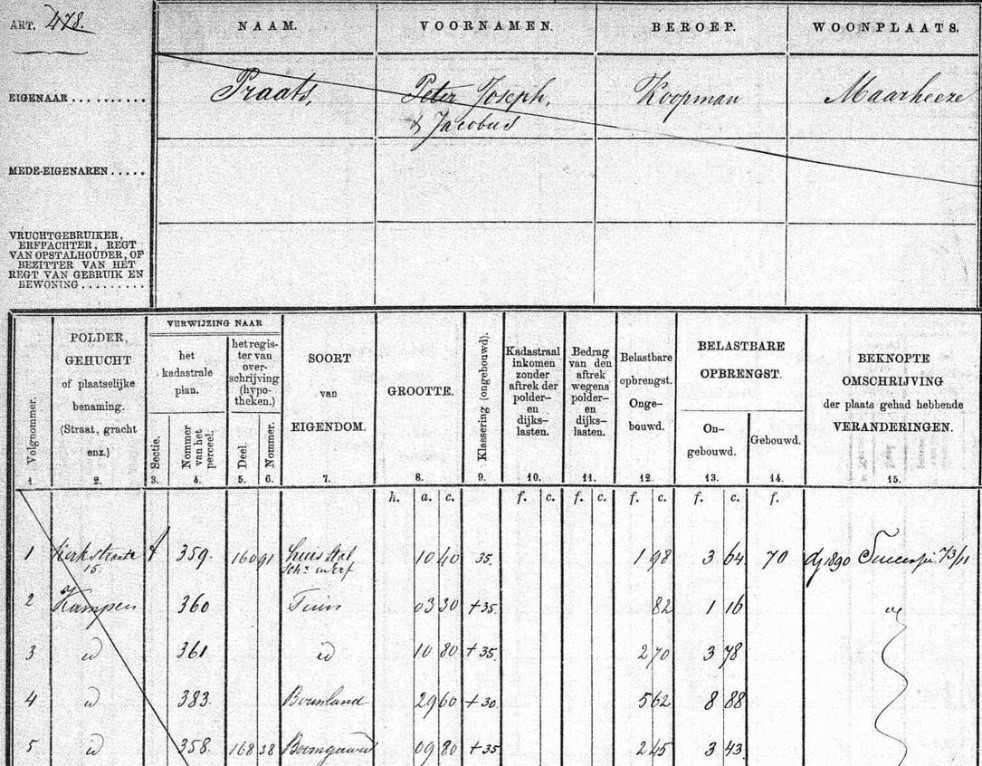 ART. 478.
NAAM. VOORNAMEN. BEROEP. WOONPLAATS.
EIGENAAR.......... Praats, Peter Joseph, Koopman Maarheeze
& Jacobus
MEDE-EIGENAREN.....
VRUCHTGEBRUIKER,
ERFPACHTER, REGT
VAN OPSTALHOUDER, OF
BEZITTER VAN HET
REGT VAN GEBRUIK EN
BEWONING.........
Volgnommer.
1
POLDER,
GEHUCHT
of plaatselijke
benaming.
(Straat, gracht
enz.)
2.
VERWIJZING NAAR
het
kadastrale
plan.
Sectie.
3.
Nommer
van het
perceel.
4.
het regis-
ter van
over-
schrijving
(hypo-
theken.)
Deel.
5.
Nommer.
6.
SOORT
van
EIGENDOM.
7.
GROOTTE.
8.
Klassering (ongebouwd).
9.
Kadastraal
inkomen
zonder
aftrek der
polder-
en
dijks-
lasten.
10.
Bedrag
van den
aftrek
wegens
polder-
en
dijks-
lasten.
11.
Belastbare
opbrengst.
Onge-
bouwd.
12.
BELASTBARE
OPBRENGST.
On-
gebouwd.
13.
Gebouwd.
14.
BEKNOPTE
OMSCHRIJVING
der plaats gehad hebbende
VERANDERINGEN.
15.
h. a. c. f. c. f. c. f. c. f. c. f.
1 Kerkstraat A 359. 160 91 huis stal 10 40 35. 1 98 3 64 70 dj 1890 Successie 73/11
15. Sch. en Erf
2 Kampen 360 Tuin 03 30 +35. 82 1 16
3 id 361 id 10 80 +35. 2 70 3 78
4 id 383. Bouwland 29 60 +30 5 62 8 88
5 id 358. 168 28 Boomgaard 09 80 +35 2 45 3 43